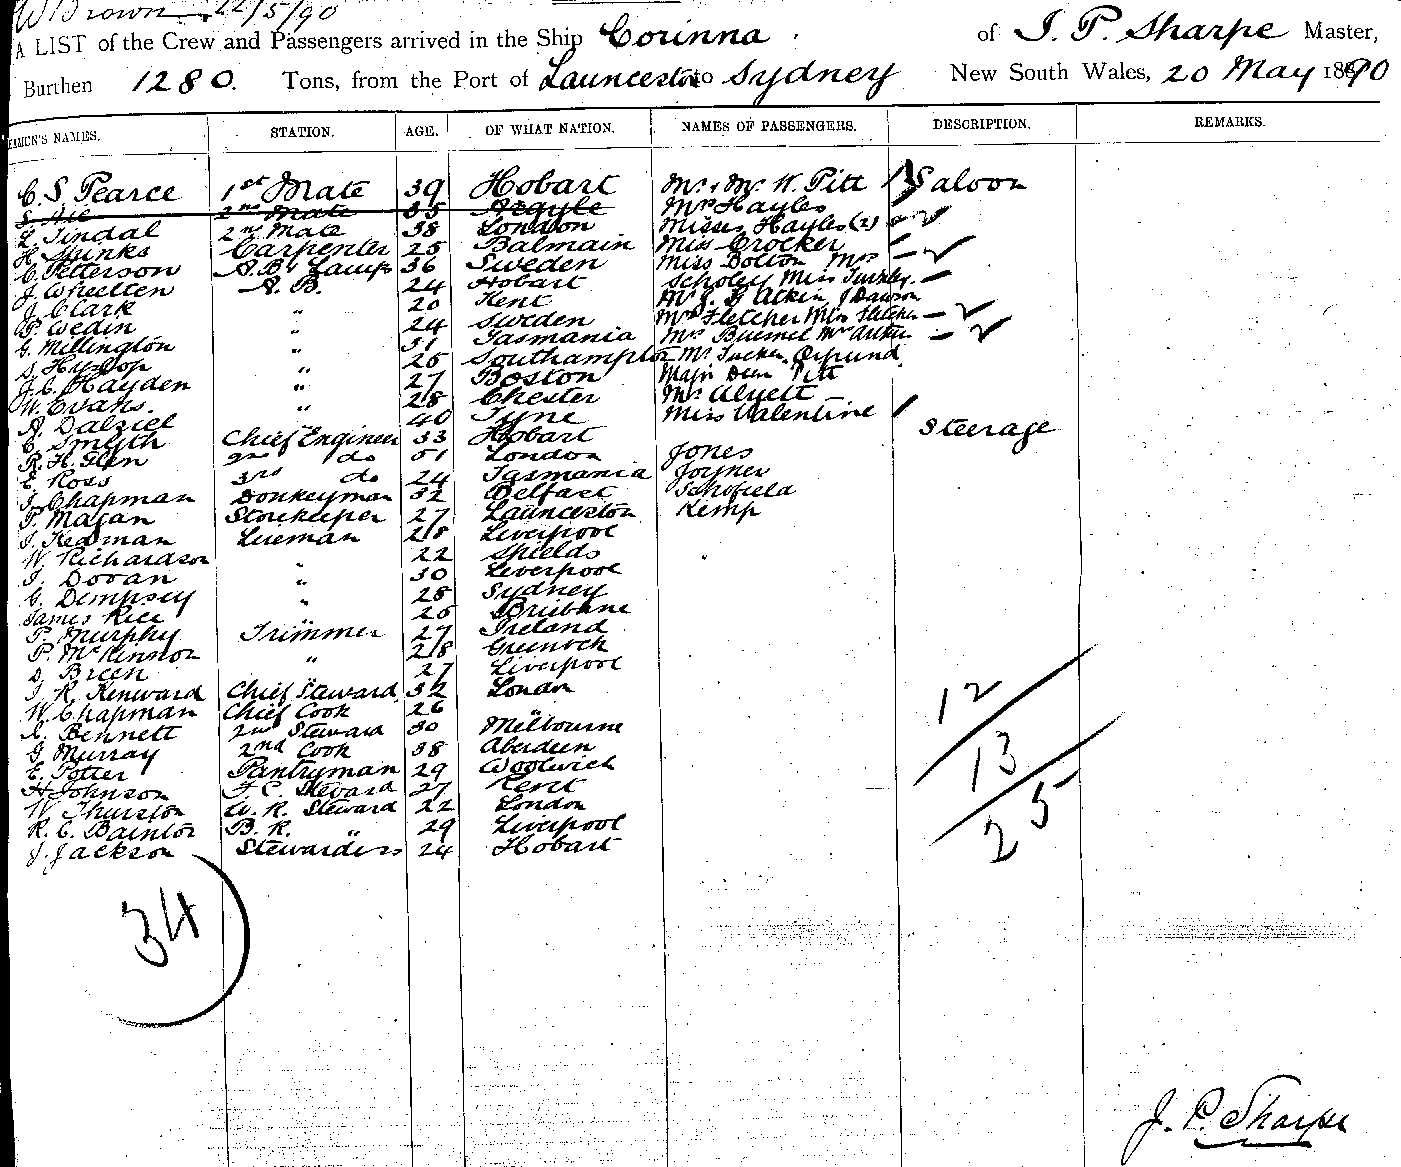 W Brown 22/5/90
A LIST of the Crew and Passengers arrived in the Ship Corinna of J. P. Sharpe Master,
Burthen 1280. Tons, from the Port of Launceston to Sydney New South Wales, 20 May 1890
SEAMEN'S NAMES. STATION. AGE. OF WHAT NATION. NAMES OF PASSENGERS. DESCRIPTION. REMARKS.
C. S. Pearce 1st Mate 39 Hobart Mr. & Mrs. W. Pitt Saloon
2nd Mate 35 Argyle Mrs Hayles
Tindal 2nd Mate 38 London Misses Hayles (2)
H. Carpenter 25 Balmain Miss Crocker
C. Petterson A.B. & Lamps 36 Sweden Miss Bolton Mrs
J. Wheelten A. B. 24 Hobart Miss
J. Clark " 20 Kent Atkin J Dawson
P. Wedin " 24 Sweden Mrs Fletcher Miss Fletcher
G. Millington " 51 Tasmania
S. Hyslop " 25 Southampton Mr Tucker
J. C. Hayden " 27 Boston Major Dean Pitt
W. Evans. " 28 Chester
A. Dalziel 40 Tyne Miss Valentine
C. Smyth Chief Engineer 33 Hobart Steerage
R. H. Glen 2nd do 51 London Jones
E. Ross 3rd do 24 Tasmania Joyner
J. Chapman Donkeyman 32 Belfast Schofield
P. Magan Storekeeper 27 Launceston Kemp
J. Kedman 28 Liverpool
W. Richardson " 22 Shields
J. Doran " 30 Liverpool
G. Dempsey " 28 Sydney
James Rice " 25 Brisbane
P. Murphy Trimmer 27 Ireland
P. McKinnon " 28 Greenock
D. Breen " 27 Liverpool
J. R. Kenward Chief Steward 32 London
W. Chapman Chief Cook 26 "
A. Bennett 2nd Steward 30 Melbourne
G. Murray 2nd Cook 38 Aberdeen
E. Potter Pantryman 29 Woolwich
H Johnson F. C. Steward 27 Kent
W. Thurston W. R. Steward 22 London
R. C. Bainton B. R. " 29 Liverpool
J. Jackson Stewardess 24 Hobart
12
13
25
34
J. P. Sharpe